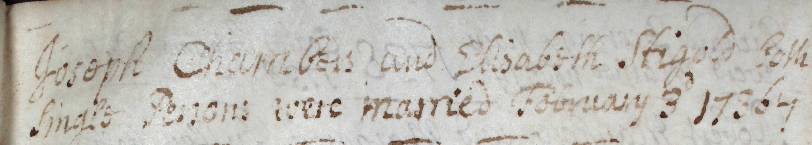 Joseph Chambers and Elisabeth Stigold both
single Persons were married February 3d 1736/7